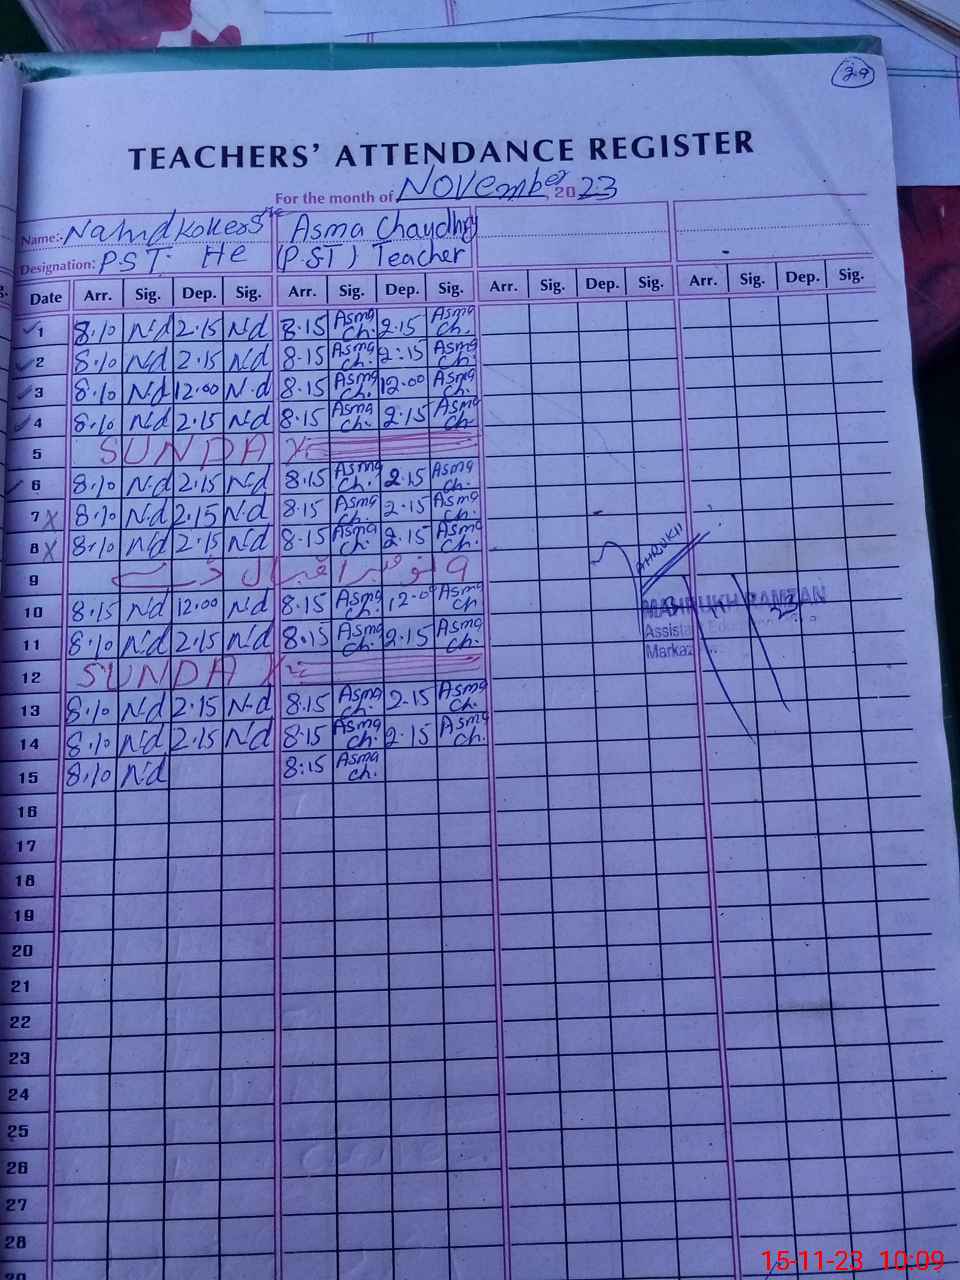 39
TEACHERS' ATTENDANCE REGISTER
For the month of November, 2023
Name:- Asma Chaudhry
Designation: P.S.T. He (P.S.T) Teacher
Date Arr. Sig. Dep. Sig. Arr. Sig. Dep. Sig. Arr. Sig. Dep. Sig. Arr. Sig. Dep. Sig.
1 8.10 N.d 2.15 N.d 8.15 Asma Ch. 2.15 Asma Ch.
2 8.10 N.d 2.15 N.d 8.15 Asma Ch. 2:15 Asma Ch.
3 8.10 N.d 12.00 N.d 8.15 Asma Ch. 12.00 Asma Ch.
4 8.10 N.d 2.15 N.d 8.15 Asma Ch. 2.15 Asma Ch
5 SUNDAY
6 8.10 N.d 2.15 N.d 8.15 Asma Ch. 2.15 Asma Ch.
7 X 8.10 N.d 2.15 N.d 8.15 Asma Ch. 2.15 Asma Ch.
8 X 8.10 N.d 2.15 N.d 8.15 Asma Ch. 2.15 Asma Ch.
9 9 نومبر اقبال ڈے
10 8.15 N.d 12.00 N.d 8.15 Asma Ch. 12.00 Asma Ch
11 8.10 N.d 2.15 N.d 8.15 Asma Ch. 2.15 Asma Ch.
12 SUNDAY
13 8.10 N.d 2.15 N.d 8.15 Asma Ch. 2.15 Asma Ch.
14 8.10 N.d 2.15 N.d 8.15 Asma Ch. 2.15 Asma Ch.
15 8.10 N.d 8:15 Asma Ch.
MAHRUKH RAMZAN
Markaz
16
17
18
19
20
21
22
23
24
25
26
27
28
15-11-23 10:09